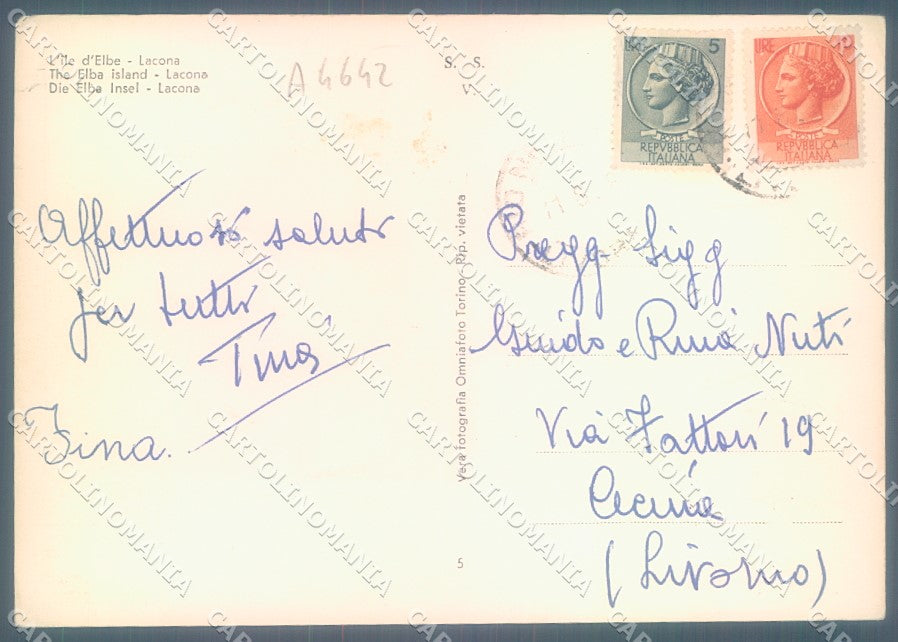 L'île d'Elbe - Lacona
The Elba island - Lacona
Die Elba Insel - Lacona
A 4642
S. S.
V.
LIRE 5
POSTE
REPVBBLICA
ITALIANA
LIRE
POSTE
REPVBBLICA
ITALIANA
Affettuosi saluti
per tutti
Tina
Zina.
Vera fotografia Omniafoto Torino - Rip. vietata
5
Pregg. Sigg
Guido e Rina Nuti
Via Fattori 19
Cecina
(Livorno)
CARTOLINOMANIA